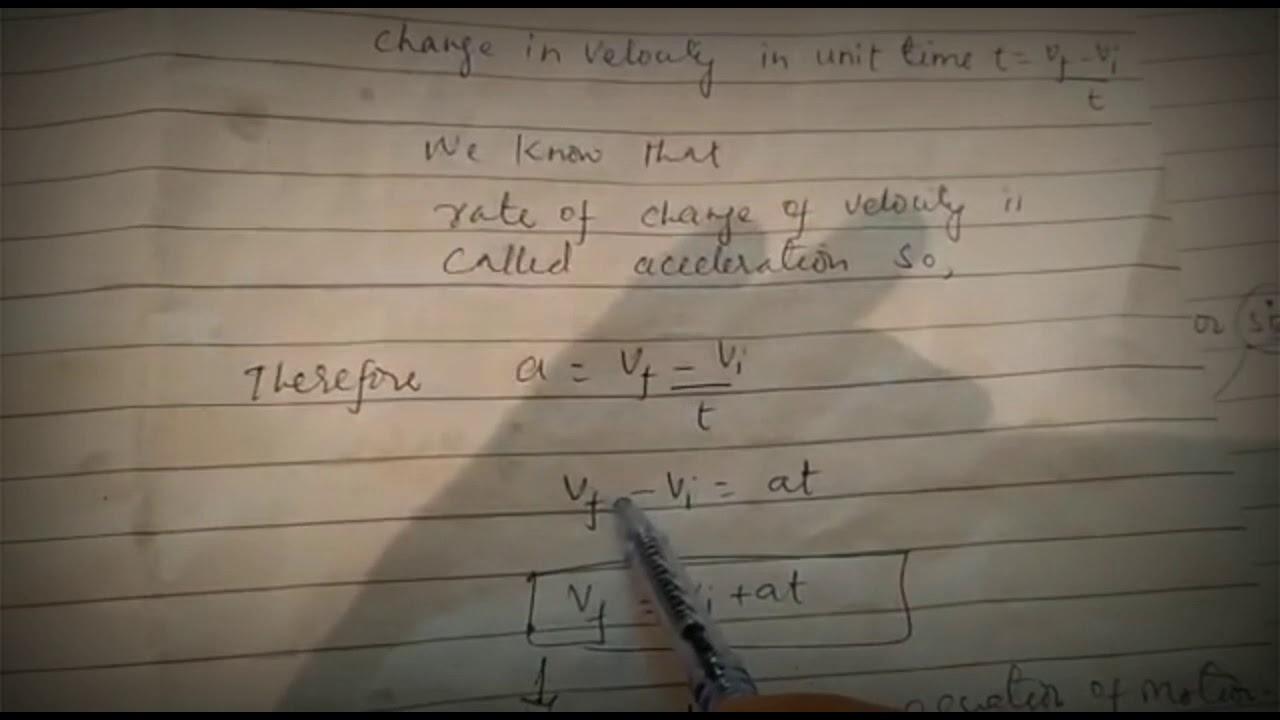 change in velocity in unit time t = vf - vi / t
We know that
rate of change of velocity is
called acceleration so,
or
Therefore a = Vf - Vi / t
Vf - Vi = at
Vf = Vi + at
of motion